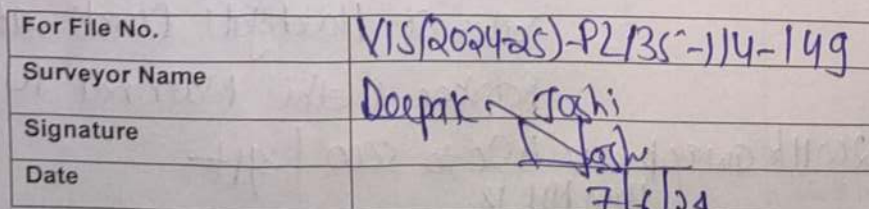 For File No. VIS(2024-25)-PL135-114-149
Surveyor Name Deepak Joshi
Signature Joshi
Date 7/6/24